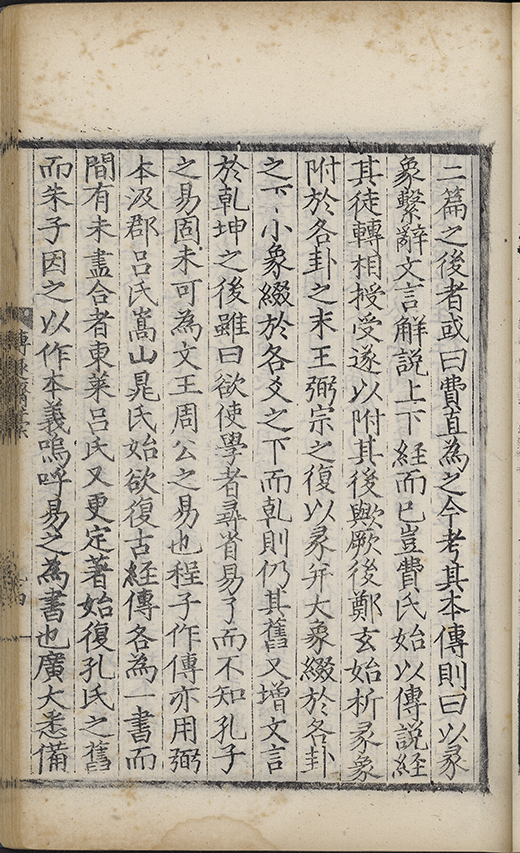 二篇之後者或曰費直為之今考其本傳則曰以彖
象繫辭文言解說上下經而已豈費氏始以傳說經
其徒轉相授受遂以附其後歟厥後鄭玄始析彖象
附於各卦之末王弼宗之復以彖并大象綴於各卦
之下小象綴於各爻之下而乹則仍其舊又增文言
於乹坤之後雖曰欲使學者尋省易了而不知孔子
之易固未可為文王周公之易也程子作傳亦用弼
本汲郡呂氏嵩山晁氏始欲復古經傳各為一書而
間有未盡合者東萊呂氏又更定著始復孔氏之舊
而朱子因之以作本義嗚呼易之為書也廣大悉備